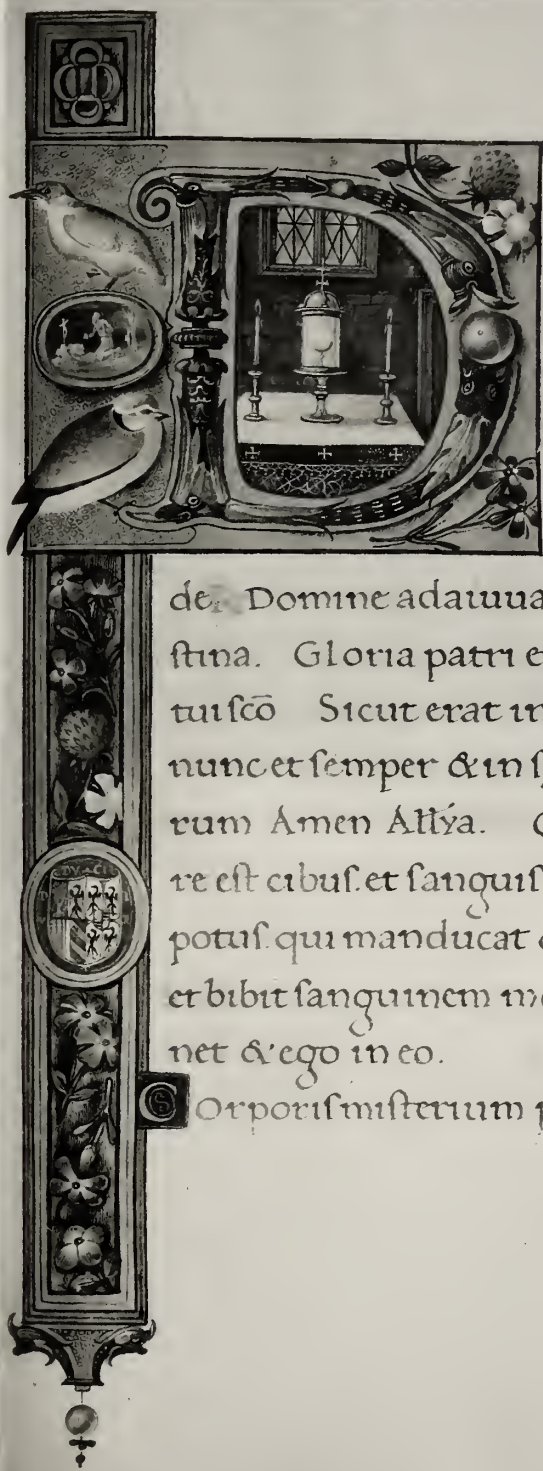 D
de. Domine adaiuua
ſtina. Gloria patri e
tui ſcō Sicut erat in
nunc et ſemper & in ſ
rum Amen Alĺya. C
re eſt cibuſ. et ſanguiſ
potuſ. qui manducat
et bibit ſanguinem m
net & ego in eo.
Corporiſ miſterium p